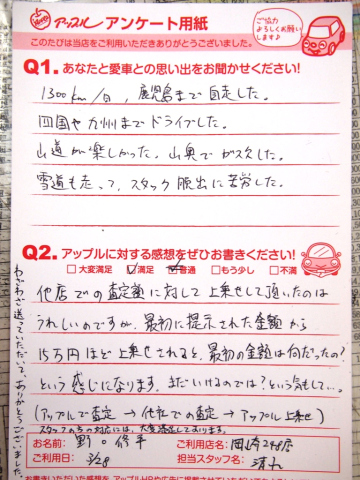 アップル アンケート用紙
ご協力
よろしくお願い
します♪
このたびは当店をご利用いただきありがとうございました。
Q1. あなたと愛車との思い出をお聞かせください!
1300km/日, 鹿児島まで自走した。
四国や九州までドライブした。
山道が楽しかった。山奥でガス欠した。
雪道も走って、スタック脱出に苦労した。
Q2. アップルに対する感想をぜひお書きください!
□大変満足 □満足 □普通 □もう少し □不満
他店での査定額に対して上乗せして頂いたのは
うれしいのですが、最初に提示された金額から
15万円ほど上乗せされると、最初の金額は何だったの?
という感じになります。まだいけるのでは?という気もして…。
(アップルで査定 → 他社での査定 → アップル上乗せ)
スタッフの方の対応には、大変満足しております。
わざわざ送っていただいて、ありがとうございました。
お名前: 野
ご利用店名: 岡崎248店
ご利用日: 3/28
担当スタッフ名: